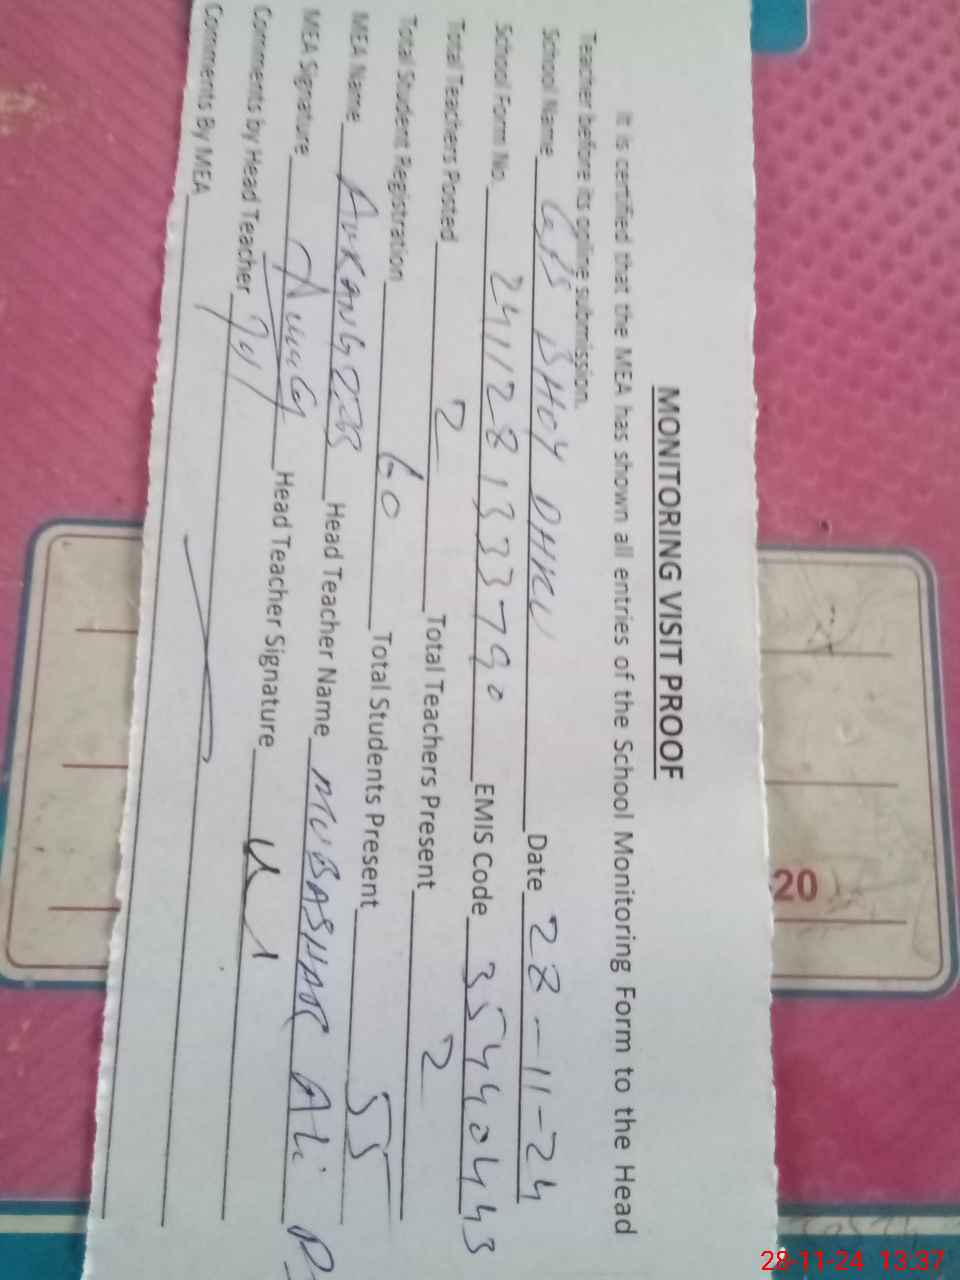 MONITORING VISIT PROOF
It is certified that the MEA has shown all entries of the School Monitoring Form to the Head
Teacher before its online submission.
School Name GPS BHOY DHKU Date 28-11-24
School Form No. 24112813379০ EMIS Code 35440443
Total Teachers Posted 2 Total Teachers Present 2
Total Student Registration 60 Total Students Present 55
MEA Name AURANGZEB Head Teacher Name MUBASHAR ALI
MEA Signature Head Teacher Signature
Comments by Head Teacher
Comments By MEA
20
28-11-24 13:37